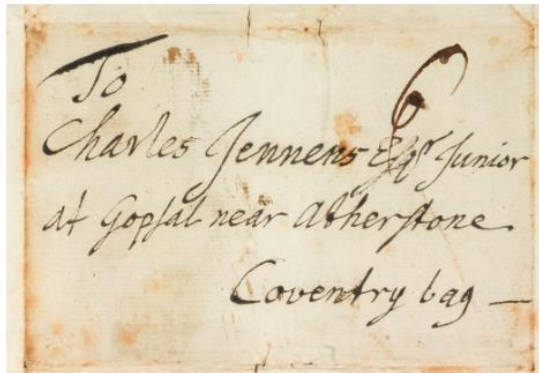 To
6
Charles Jennens Esqr Junior
at Gopſal near Atherſtone
Coventry bag —